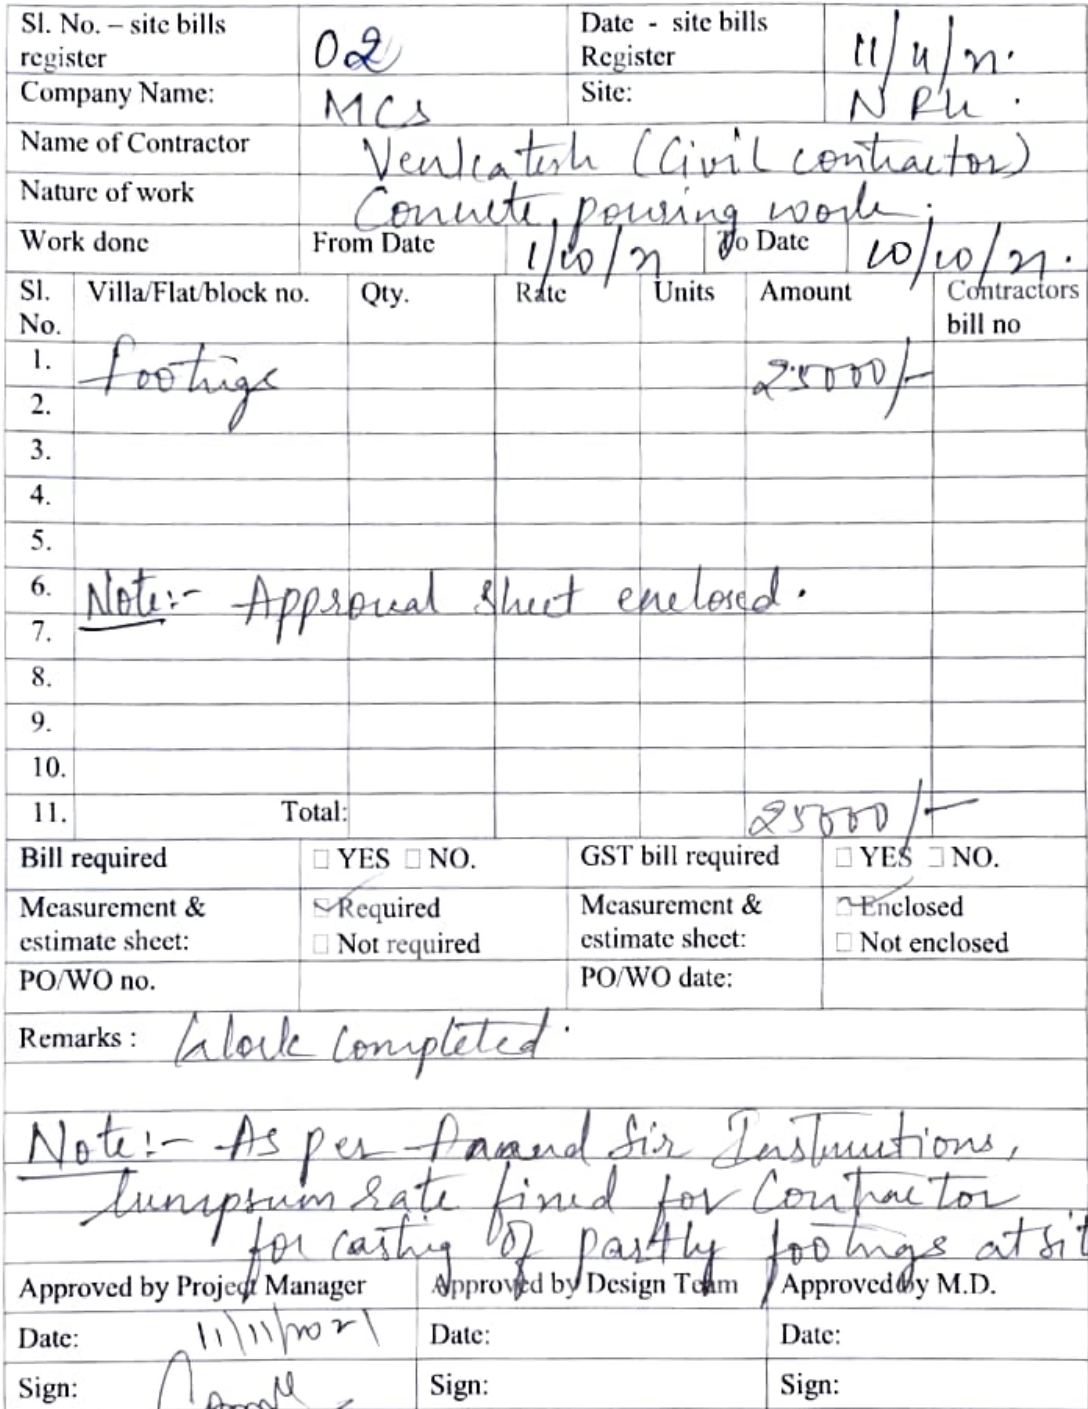 Sl. No. – site bills register 02 Date - site bills Register 11/11/21.
Company Name: MCS Site: NRK.
Name of Contractor Venkatesh (Civil contractor)
Nature of work Concrete pouring work.
Work done From Date 1/10/21 To Date 10/10/21.
Sl. No. Villa/Flat/block no. Qty. Rate Units Amount Contractors bill no
1. footings 25000/-
2.
3.
4.
5.
6. Note:- Approval sheet enclosed.
7.
8.
9.
10.
11. Total: 25000/-
Bill required YES NO. GST bill required YES NO.
Measurement & estimate sheet: Required Not required Measurement & estimate sheet: Enclosed Not enclosed
PO/WO no. PO/WO date:
Remarks : Work completed.
Note:- As per Anand Sir Instructions,
lumpsum rate fixed for Contractor
for casting of partly footings at sit
Approved by Project Manager Approved by Design Team Approved by M.D.
Date: 11/11/2021 Date: Date:
Sign: Sign: Sign: